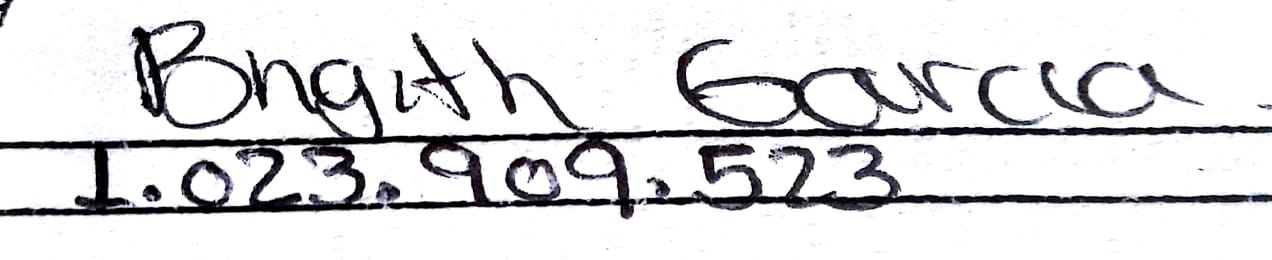 Brigith Garcia
1.023.909.523